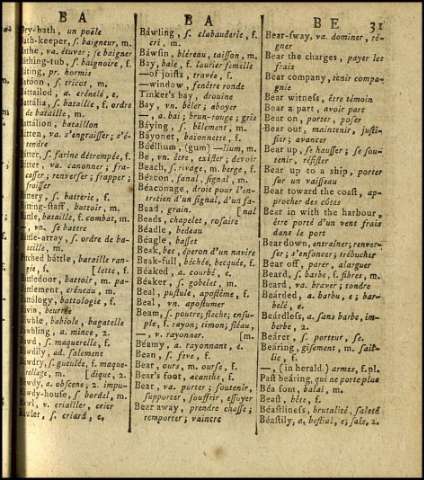 B A
B A
B E
31
ry-bath, un poële
-keeper, s. baigneur, m.
the, va. étuver; se baigner
thing-tub, s. baignoire, f.
lting, pr. hormis
toon, s. cricot, m.
ttailed, a. crénelé, e
ttália, s. bataille, f. ordre
de bataille, m.
ttálion, bataillon
tten, va. s'engraisser; s'é-
tendre
tter, s. farine détrempée, f.
tter, va. canonner; fra-
casser; renverser; frapper;
froisser
ttery, s. batterie, f.
tting-staff, battoir, m.
ttle, bataille, f. combat, m.
—, vn. se battre
ttle-array, s. ordre de ba-
taille, m.
tched báttle, bataille ran-
gée, f. [lette, f.
ttledoor, battoir, m. pa-
ttlement, créneau, m.
ttólogy, battologie, f.
vin, beurrée
wble, babiole, bagatelle
wbling, a. mince, 2.
wd, s. maquerelle, f.
wdily, ad. salement
wdry, s. gueulée, f. maque-
rellage, m. [dique, 2.
wdy, a. obscene, 2. impu-
wdy-house, s. bordel, m.
wl, vn. criailler, crier
wler, s. criard, e,
Báwling, s. clabauderie, f.
cri, m.
Báwsin, bléreau, taisson, m.
Bay, baie, f. laurier femelle
—of joists, travée, f.
—window, fenêtre ronde
Tinker's bay, drouine
Bay, vn. béler; aboyer
—, a. bai; brun-rouge; gris
Báying, s. bêlement, m.
Báyonet, baionnette, f.
Bdéllium, (gum) —lium, m.
Be, vn. être, exister; devoir
Beach, s. rivage, m. berge, f.
Béacon, fanal, signal, m.
Béaconage, droit pour l'in-
tretien d'un signal, d'un fa-
Bead, grain, [nal
Beads, chapelet, rosaire
Béadle, bedeau
Béagle, basset
Beak, bec, éperon d'un navire
Beak-full, béchée, becquée, f.
Béaked, a. courbé, e.
Béaker, s. gobelet, m.
Beal, pustule, apostême, f.
Beal, vn. apostumer
Beam, s. poutre; fleche; ensu-
ple, f. rayon; timon; fléau,
—, v. rayonner. [m.
Béamy, a. rayonnant, e.
Bean, s. féve, f.
Bear, ours, m. ourse, f.
Bear's foot, acanthe, f.
Bear, va. porter; soutenir,
supporter, souffrir, essuyer
Bear away, prendre chasse;
remporter; vaincre
Bear-sway, va. dominer, ré-
gner
Bear the charges, payer les
frais
Bear company, tenir compa-
gnie
Bear witness, être témoin
Bear a part, avoir part
Bear on, porter, poser
Bear out, maintenir, justi-
fier; avancer
Bear up, se hausser; se sou-
tenir, résister
Bear up to a ship, porter
sur un vaisseau
Bear toward the coast, ap-
procher des côtes
Bear in with the harbour,
être porté d'un vent frais
dans le port
Bear down, entraîner; renver-
ser; s'enfoncer; trébucher
Bear off, parer, alarguer
Beard, s. barbe, f. fibres, m.
Beard, va. braver; tondre
Béarded, a. barbu, e; bar-
belé, e
Béardless, a. sans barbe, im-
berbe, 2.
Béarer, s. porteur, se.
Béaring, gisement, m. sail-
lie, f.
—, (in herald.) armes, f. pl.
Past béaring, qui ne porte plus
Béa font, balai, m.
Beast, bête, f.
Béastliness, brutalité, saleté
Béastily, a, bestial, e; sale, 2.